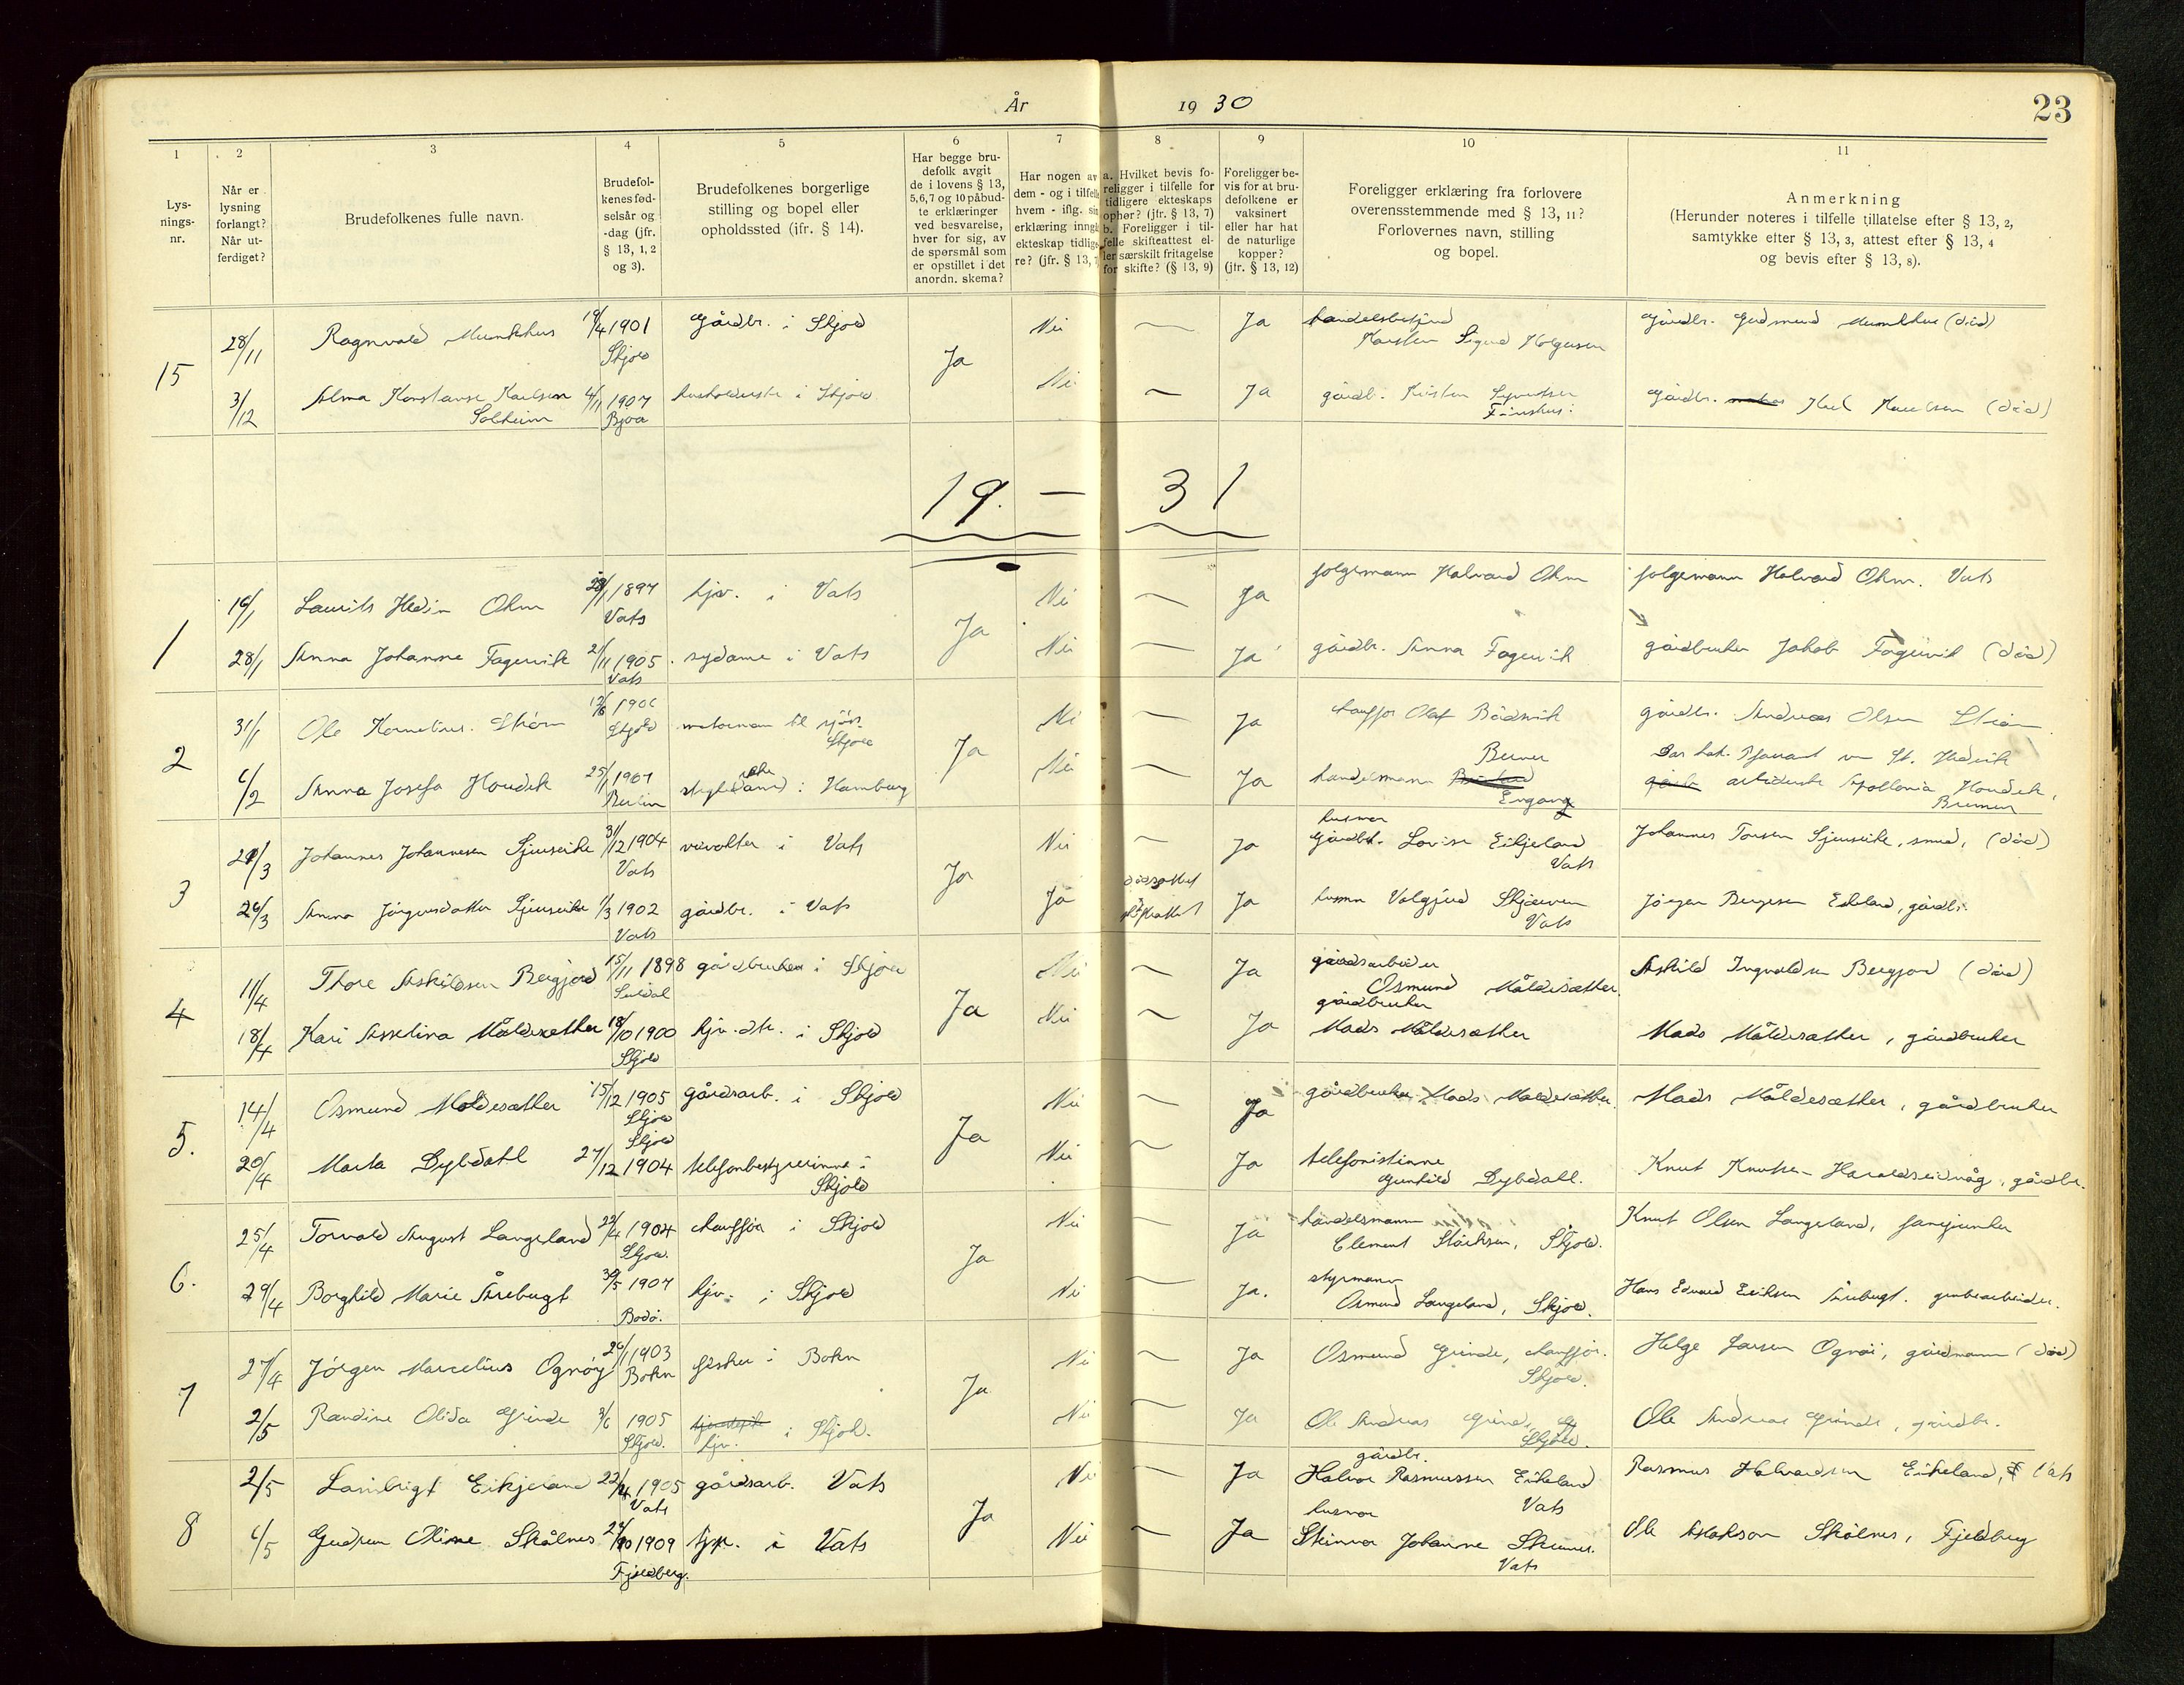 År 1930
23
1 2 3 4 5 6 7 8 9 10 11
Lys-
nings-
nr.
Når er
lysning
forlangt?
Når ut-
ferdiget?
Brudefolkenes fulle navn.
Brudefol-
kenes fød-
selsår og
-dag (jfr.
§ 13, 1, 2
og 3).
Brudefolkenes borgerlige
stilling og bopel eller
opholdssted (ifr. § 14).
Har begge bru-
defolk avgit
de i lovens § 13,
5,6,7 og 10 påbud-
te erklæringer
ved besvarelse,
hver for sig, av
de spørsmål som
er opstillet i det
anordn. skema?
Har nogen av
dem - og i tilfelle
hvem - iflg. sin
erklæring inngåt
ekteskap tidlige-
re? (jfr. § 13, 7
a. Hvilket bevis fo-
religger i tilfelle for
tidligere ekteskaps
ophør? (jfr. § 13, 7)
b. Foreligger i til-
felle skifteattest el-
ler særskilt fritagelse
for skifte? (§ 13, 9)
Foreligger be-
vis for at bru-
defolkene er
vaksinert
eller har hat
de naturlige
kopper?
(jfr. § 13, 12)
Foreligger erklæring fra forlovere
overensstemmende med § 13, 11?
Forlovernes navn, stilling
og bopel.
Anmerkning
(Herunder noteres i tilfelle tillatelse efter § 13, 2,
samtykke efter § 13, 3, attest efter § 13, 4
og bevis efter § 13, 8).
15 28/11 Ragnvald Munkhus 19/4 1901 Skjold gårdbr. i Skjold Ja Nei — Ja Karsten Sigurd Holgersen gårdbr. Gudmund Munkhus (död)
3/12 Alma Konstanse Karlsen Solheim 4/11 1907 Bjoa husholderske i Skjold Nei — Ja gårdb. Kristen gårdbr. Karl (död)
19. — 31
1 16/1 Laurits Hedin Ohm 1897 Vats hjv. i Vats Ja Nei — Ja folgemann Halvard Ohm folgemann Halvard Ohm. Vats
28/1 Anna Johanne Fagervik 2/11 1905. Vats sydame i Vats Nei — Ja gårdbr. Anna Fagervik gårdbruker Jakob Fagervik (död)
2 31/1 Ole Kornelius Ström Skjold Skjold Ja Nei — Ja Olaf gårdbr. Andreas Olsen Ström
6/2 Anna Josefa Houdek 25/1 1907 Berlin i Hamburg Nei — Ja handelsmann Berner Engang arbeiderske Apollonia Houdek, Bremen
3 21/3 Johannes Johannesen Sjurseike 31/12 1904 Vats i Vats Ja Nei — Ja husmor Lovise Eikjeland Vats Johannes Torsen Sjurseike, smed, (död)
26/3 Anna Jörgensdatter Sjurseike 1/3 1902 Vats gårdbr. i Vats Ja dödsattest Ja Valgjerd Vats Jörgen Bergesen Eikeland, gårdbr.
4 11/4 Thore Askildsen Bergjord 15/11 1898 Suldal gårdbruker i Skjold Ja Nei — Ja gårdsarbeider Osmund Måldesæther Askild Ingvaldsen Bergjord (död)
18/4 Kari Asselina Måldesæther 18/10 1900 Skjold hjv. dtr. i Skjold Nei — Ja gårdbruker Mads Måldesæther Mads Måldesæther, gårdbruker
5. 14/4 Osmund Moldesæther 15/12 1905 Skjold gårdsarb. i Skjold Ja Nei — Ja gårdbruker Mads Moldesæther Mads Måldesæther, gårdbruker
20/4 Marta Dybdahl 27/12 1904 Skjold telefonbestyrerinne i Skjold Nei — Ja telefonistinne Gunhild Dybdahl. Knut Knutsen Haraldseidvåg, gårdbr.
6. 25/4 Torvald August Langeland 22/4 1904 Skjold. chauffør i Skjold Ja Nei — Ja handelsmann Clement Skjold. Knut Olsen Langeland,
29/4 Borghild Marie Årebugt 30/5 1907 Bodö. hjv. i Skjold Nei — Ja. styrmann Osmund Langeland, Skjold. Hans Edvard Eriksen Årebugt. grubearbeider.
7 27/4 Jörgen Marcelius Ognöy 1903 Bokn fisker i Bokn Ja Nei — Ja Osmund Grinde, chauffør. Skjold. Helge Larsen Ognöi, gårdmann (död)
2/5 Randine Olida Grinde 3/6 1905 Skjold. hjv. i Skjold. Nei — Ja Ole Andreas Grinde, Skjold. Ole Andreas Grinde, gårdbr.
8 2/5 Lambrigt Eikjeland 1905 Vats gårdsarb. Vats Ja Nei — Ja gårdbr. Halvor Rasmussen Eikeland Vats Rasmus Halvardsen Eikeland, Vats
6/5 Gudrun Oline Skålnes 1909 Fjeldberg. hjv. i Vats Nei — Ja husmor Steinvor Johanne Vats Ole Skålnes, Fjeldberg